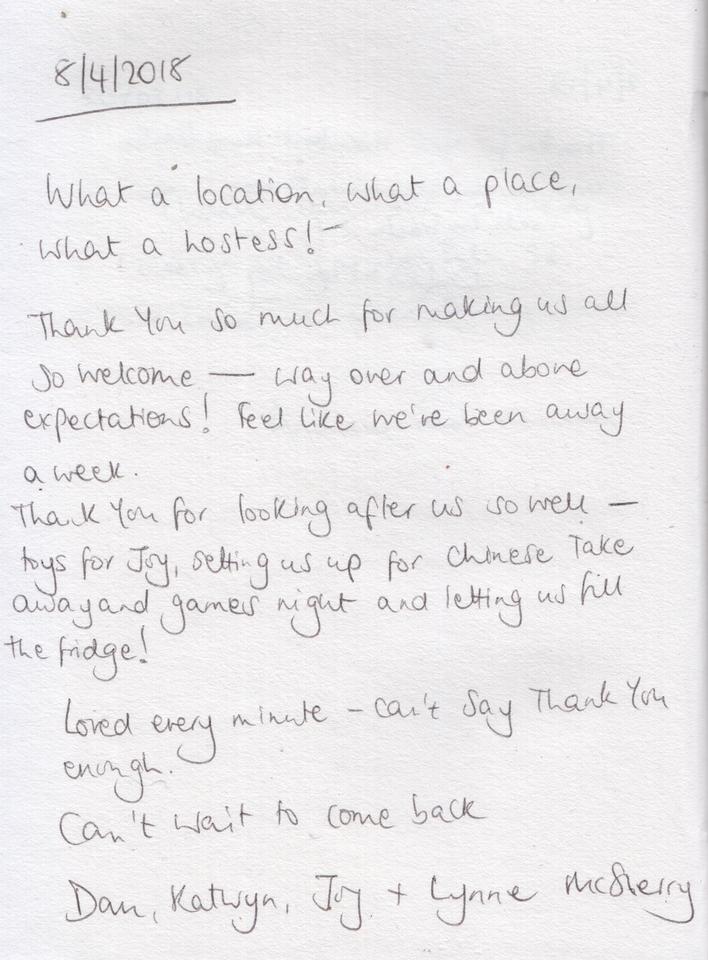 8/4/2018
What a location, what a place,
what a hostess!
Thank You so much for making us all
so welcome — way over and above
expectations! Feel like we've been away
a week.
Thank You for looking after us so well —
toys for Joy, setting us up for Chinese Take
away and games night and letting us fill
the fridge!
Loved every minute – can't say Thank You
enough.
Can't wait to come back
Dan, Kathryn, Joy + Lynne McSherry